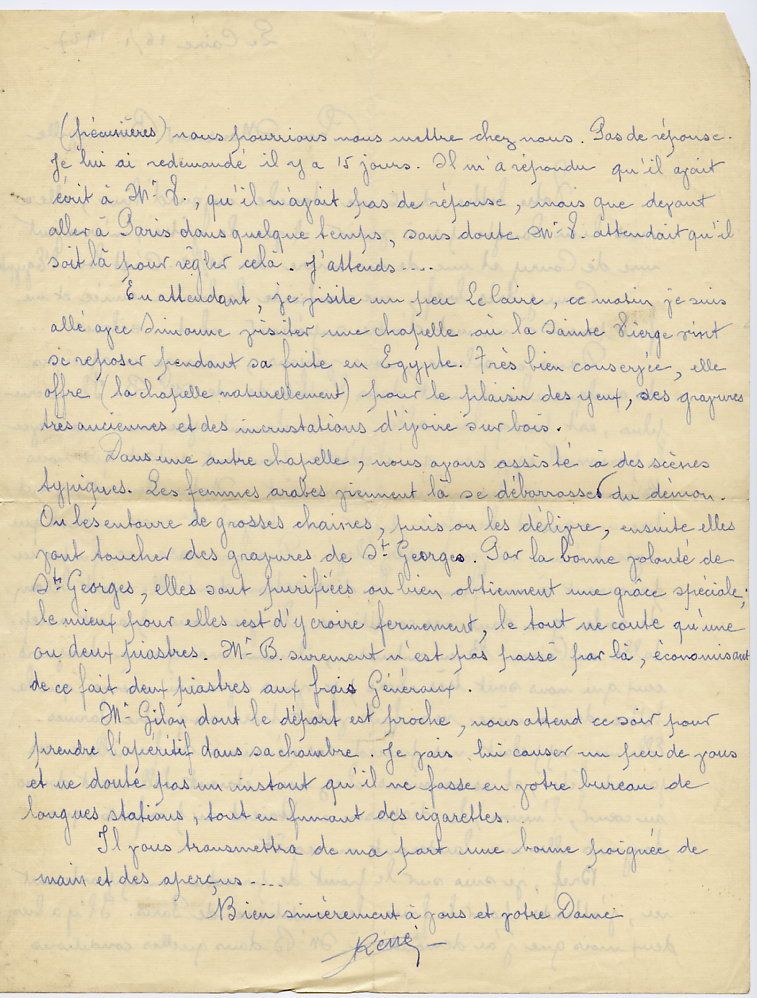 (pécunières) nous pourrions nous mettre chez nous. Pas de réponse.
Je lui ai redemandé il y a 15 jours. Il m'a répondu qu'il avait
écrit à Mr V., qu'il n'avait pas de réponse, mais que devant
aller à Paris dans quelque temps, sans doute Mr V. attendait qu'il
soit là pour régler cela. J'attends....
En attendant, je visite un peu Le Caire, ce matin je suis
allé avec Simonne visiter une chapelle où la Sainte Vierge vint
se reposer pendant sa fuite en Egypte. Très bien conservée, elle
offre (la chapelle naturellement) pour le plaisir des yeux, des gravures
très anciennes et des incrustations d'ivoire sur bois.
Dans une autre chapelle, nous avons assisté à des scènes
typiques. Les femmes arabes viennent là se débarrasser du démon.
On les entoure de grosses chaines, puis on les délivre, ensuite elles
vont toucher des gravures de St Georges. Par la bonne volonté de
St Georges, elles sont purifiées ou bien obtiennent une grâce spéciale;
le mieux pour elles est d'y croire fermement, le tout ne coute qu'une
ou deux piastres. Mr B. surement n'est pas passé par là, économisant
de ce fait deux piastres aux frais Généraux.
Mr Gilon dont le départ est proche, nous attend ce soir pour
prendre l'apéritif dans sa chambre. Je vais lui causer un peu de vous
et ne doute pas un instant qu'il ne fasse en votre bureau de
longues stations, tout en fumant des cigarettes.
Il vous transmettra de ma part une bonne poignée de
main et des aperçus....
Bien sincèrement à vous et votre Dame
René